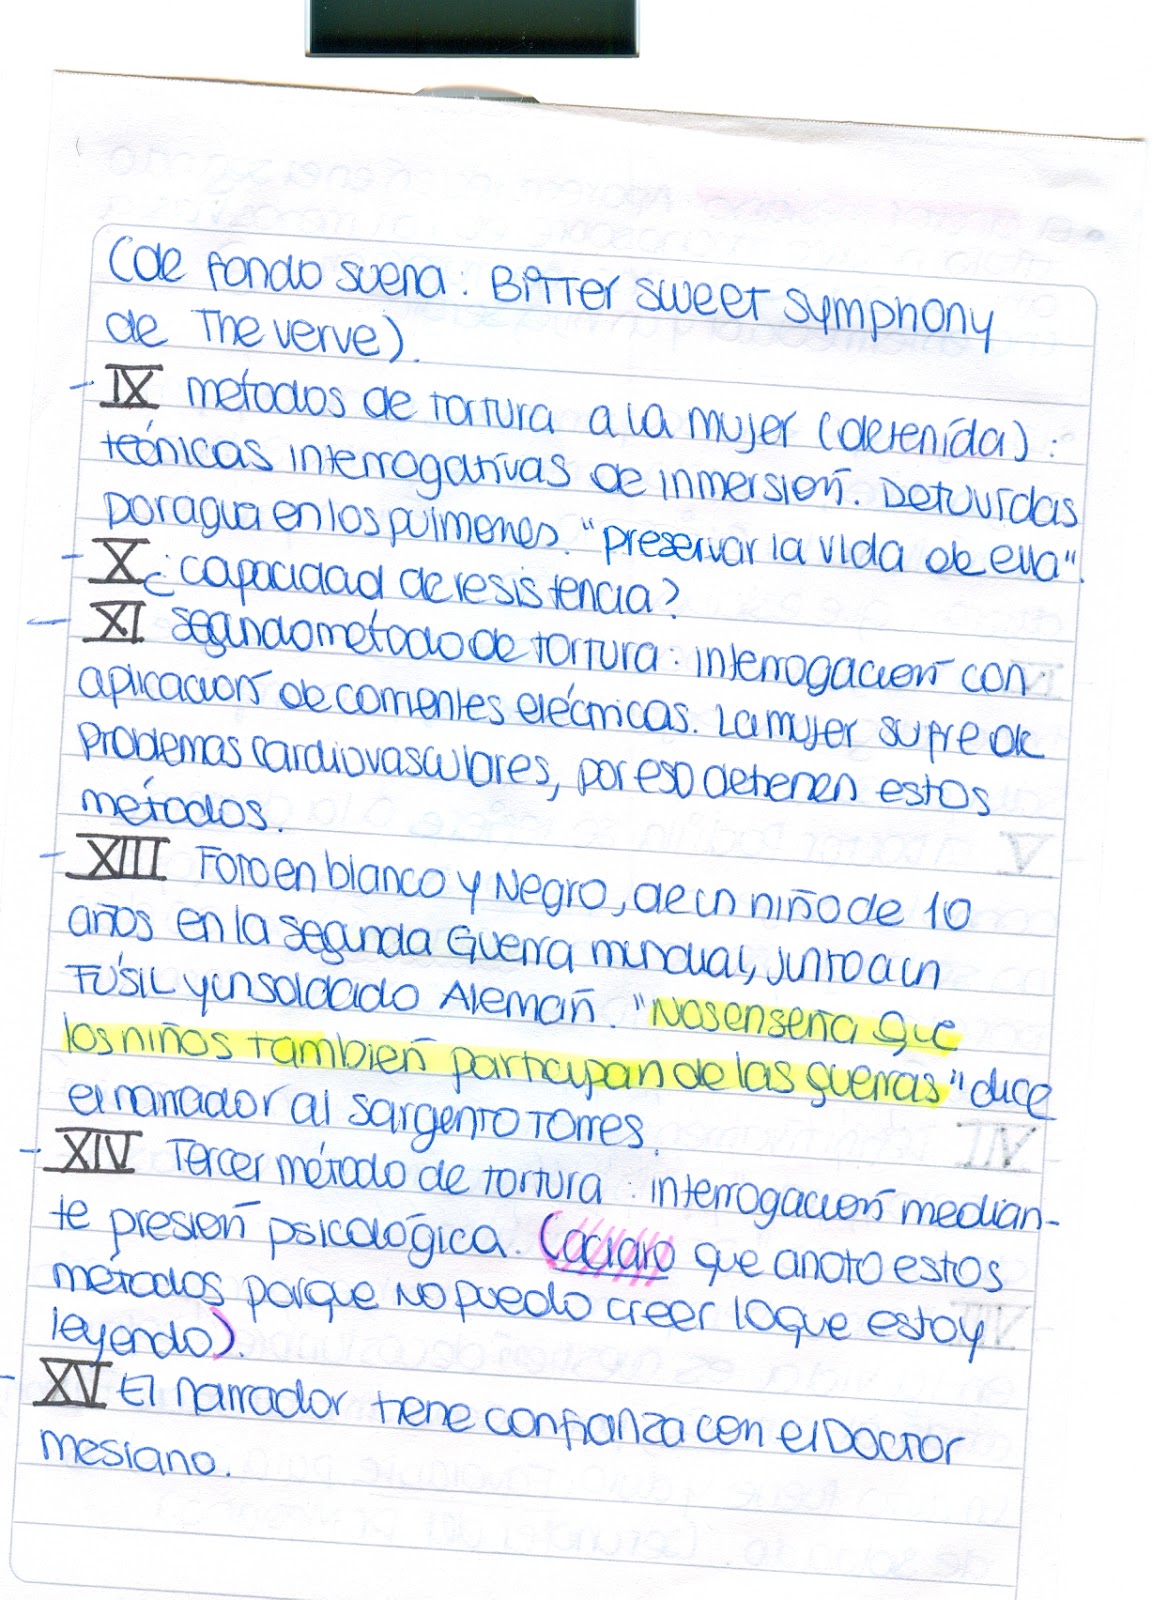 (de fondo suena: Bitter sweet symphony
de The verve).
- IX metodos de tortura a la mujer (detenida):
técnicas interrogativas de inmersión. Detuvidas
por agua en los pulmones. "preservar la vida de ella".
- X ¿capacidad de resistencia?
- XI segundo metodo de tortura: interrogación con
aplicación de corrientes eléctricas. La mujer sufre de
problemas cardiovasculares, por eso detienen estos
métodos.
- XIII Foto en blanco y Negro, de un niño de 10
años en la segunda Guerra mundial, junto a un
Fúsil y un soldado Alemán. "Nos enseña que
los niños tambien participan de las guerras" dice
el narrador al sargento Torres.
- XIV Tercer método de tortura: interrogación median-
te presión psicológica. (aclaro que anoto estos
métodos porque no puedo creer lo que estoy
leyendo).
- XV El narrador tiene confianza con el Doctor
mesiano.